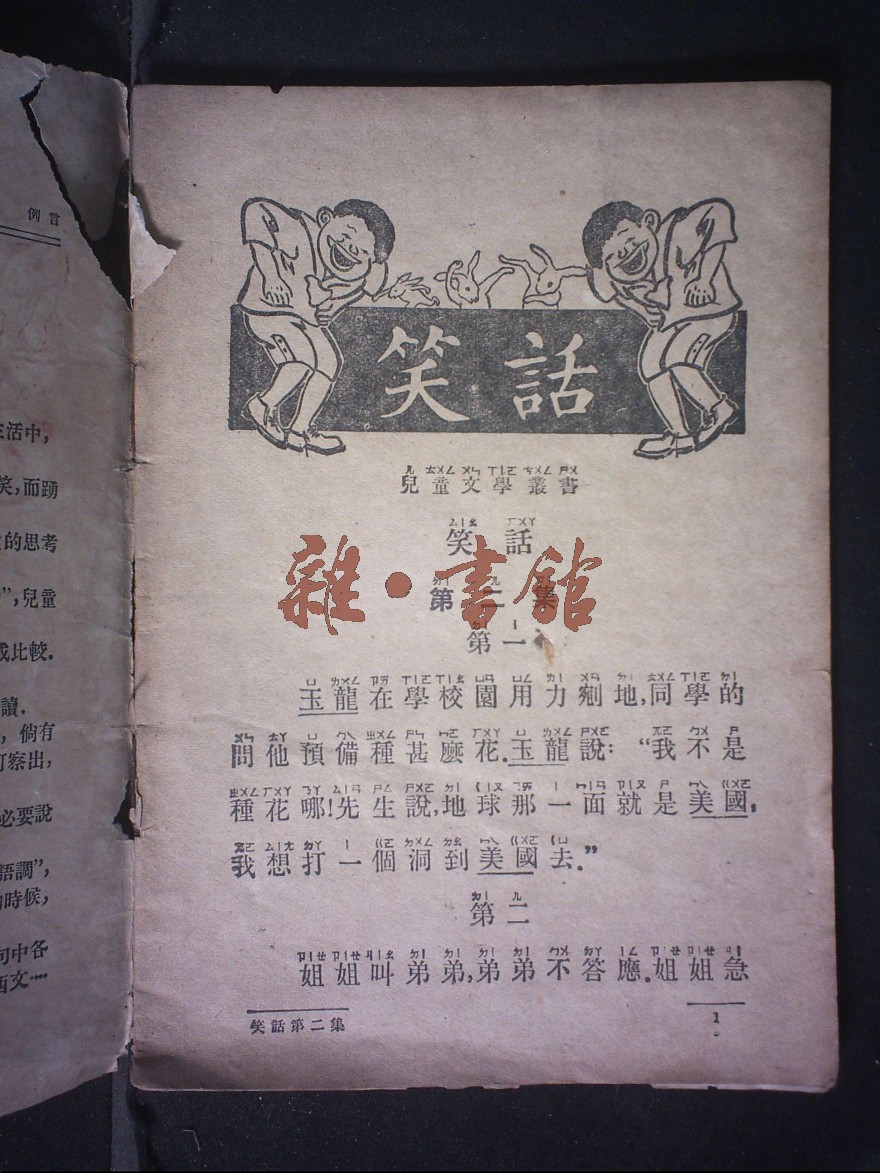 例言
生活中,
笑,而踴
的思考
”,兒童
成比較.
讀.
，倘有
可察出,
必要說
語調”,
的時候,
句中各
西文…
笑話
兒童文學叢書
笑話
第二集
第一
玉龍在學校園用力剜地,同學的
問他預備種甚麼花.玉龍說：“我不是
種花哪!先生說,地球那一面就是美國,
我想打一個洞到美國去.”
第二
姐姐叫弟弟,弟弟不答應.姐姐急
笑話第二集
1
雜·書館